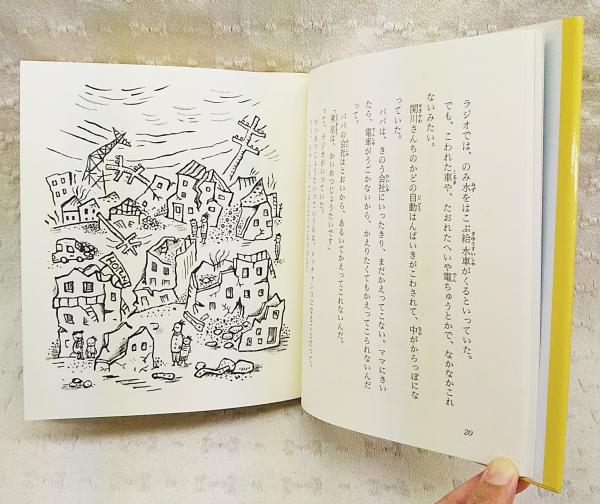 ラジオでは、のみ水をはこぶ給水車がくるといっていた。
でも、こわれた車や、たおれたへいや電ちゅうとかで、なかなかこれ
ないみたい。
関川さんちのかどの自動はんばいきがこわされて、中がからっぽにな
っていた。
パパは、きのう会社にいったきり、まだかえってこない。ママにきい
たら、電車がうごかないから、かえりたくてもかえってこられないんだ
って。
パパの会社はとおいから、あるいてかえってこれないんだ。
「東京は、かいめつじょうたいです」
って、ラジオがいっていた。
かいめつじょうたいっていうのは、メチャメチャになることだって。
20